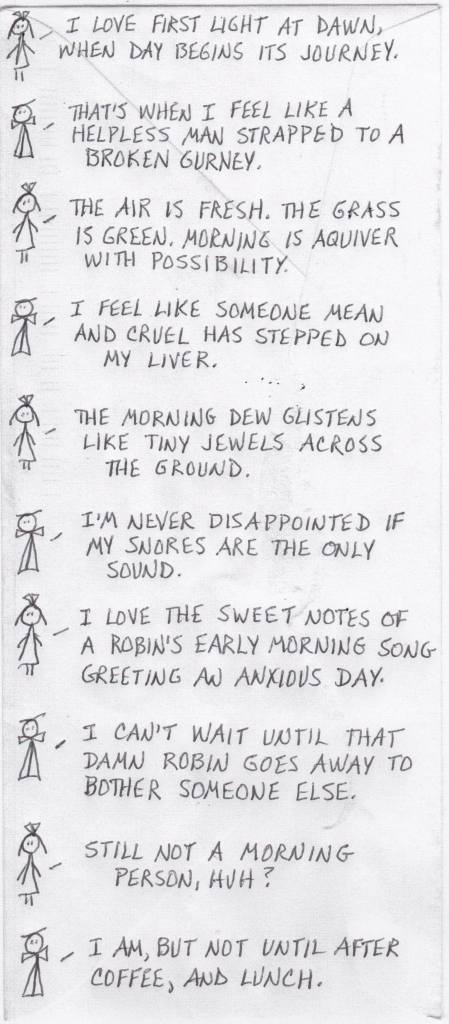 I LOVE FIRST LIGHT AT DAWN,
WHEN DAY BEGINS ITS JOURNEY.
THAT'S WHEN I FEEL LIKE A
HELPLESS MAN STRAPPED TO A
BROKEN GURNEY.
THE AIR IS FRESH. THE GRASS
IS GREEN. MORNING IS AQUIVER
WITH POSSIBILITY.
I FEEL LIKE SOMEONE MEAN
AND CRUEL HAS STEPPED ON
MY LIVER.
THE MORNING DEW GLISTENS
LIKE TINY JEWELS ACROSS
THE GROUND.
I'M NEVER DISAPPOINTED IF
MY SNORES ARE THE ONLY
SOUND.
I LOVE THE SWEET NOTES OF
A ROBIN'S EARLY MORNING SONG
GREETING AN ANXIOUS DAY.
I CAN'T WAIT UNTIL THAT
DAMN ROBIN GOES AWAY TO
BOTHER SOMEONE ELSE.
STILL NOT A MORNING
PERSON, HUH?
I AM, BUT NOT UNTIL AFTER
COFFEE, AND LUNCH.